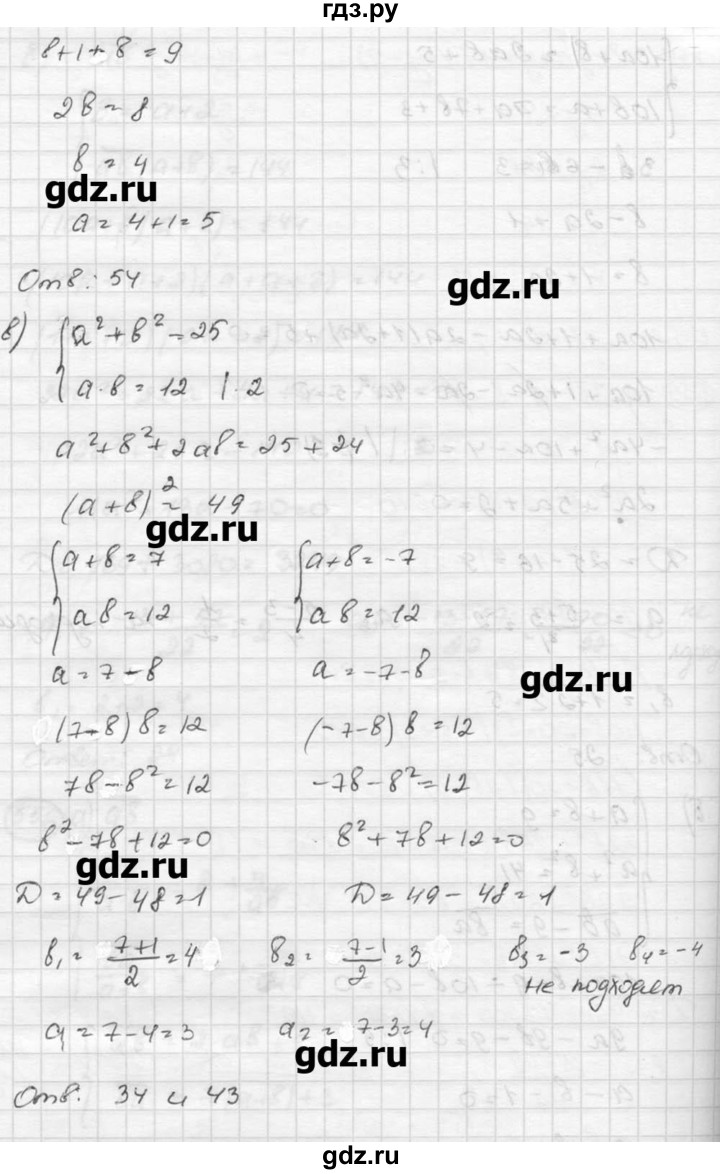 гдз.ру
в+1+в=9
2в=8
в=4
gdz.ru
а=4+1=5
Отв: 54
gdz.ru
в) { а²+в²=25
а·в=12 |·2
а²+в²+2ав=25+24
(а+в)²=49
gdz.ru
{ а+в=7 { а+в=-7
ав=12 ав=12
а=7-в а=-7-в
gdz.ru
(7-в)в=12 (-7-в)в=12
7в-в²=12 -7в-в²=12
в²-7в+12=0 в²+7в+12=0
gdz.ru
D=49-48=1 D=49-48=1
в₁=(7+1)/2=4 в₂=(7-1)/2=3 в₃=-3 в₄=-4
не подходят
а₁=7-4=3 а₂=7-3=4
gdz.ru
Отв: 34 и 43
gdz.ru